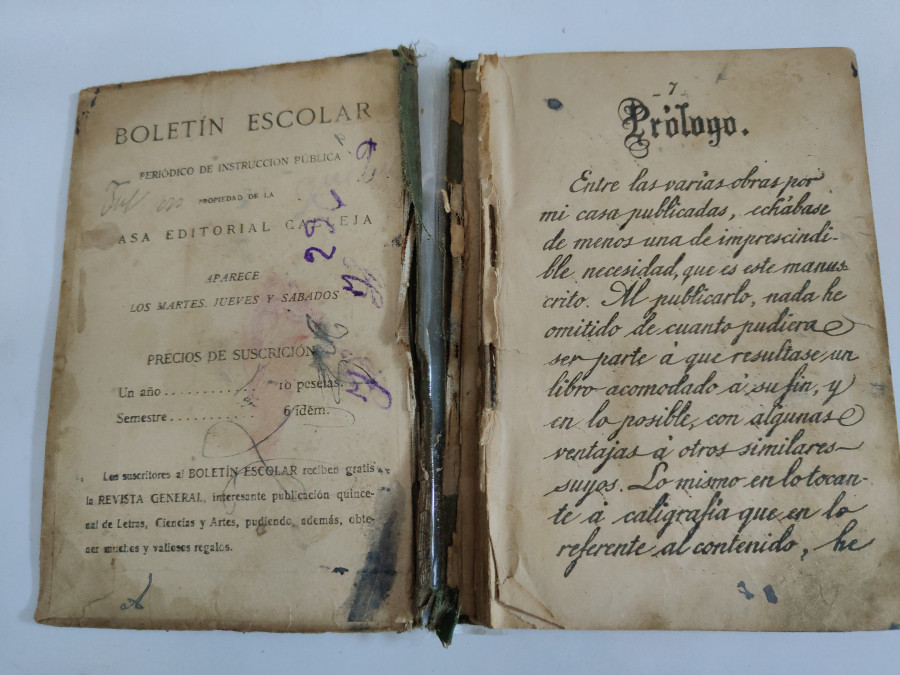 BOLETÍN ESCOLAR
PERIÓDICO DE INSTRUCCION PÚBLICA
PROPIEDAD DE LA
ASA EDITORIAL CALLEJA
APARECE
LOS MARTES, JUEVES Y SÁBADOS
PRECIOS DE SUSCRICIÓN
Un año . . . . . . . . . . . . 10 pesetas.
Semestre . . . . . . . . . . . 6 idem.
Los suscritores al BOLETÍN ESCOLAR reciben gratis
la REVISTA GENERAL, interesante publicación quince-
nal de Letras, Ciencias y Artes, pudiendo, además, obte-
ner muchos y valiosos regalos.
- 7 -
Prólogo.
Entre las varias obras por
mi casa publicadas, echábase
de menos una de imprescindi-
ble necesidad, que es este manus-
crito. Al publicarlo, nada he
omitido de cuanto pudiera
ser parte á que resultase un
libro acomodado á su fin, y
en lo posible, con algunas
ventajas á otros similares
suyos. Lo mismo en lo tocan-
te á caligrafía que en lo
referente al contenido, he